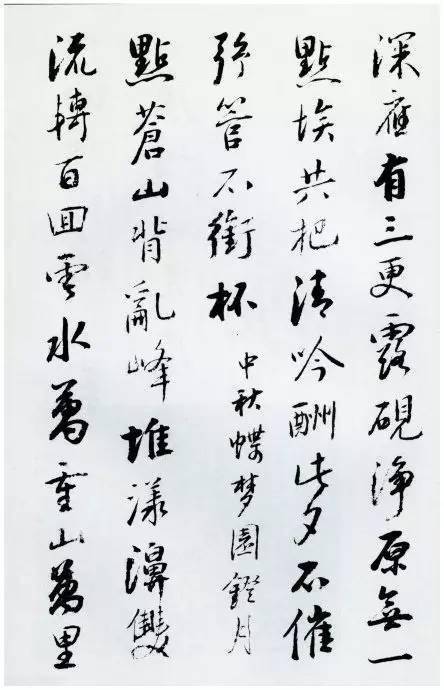 深應有三更露硯淨原無一
點埃共把清吟酬此夕不催
弦管不銜杯 中秋蝶梦園鐙月
點蒼山背亂峰堆漾濞雙
流轉百囬雲水萬重山萬里